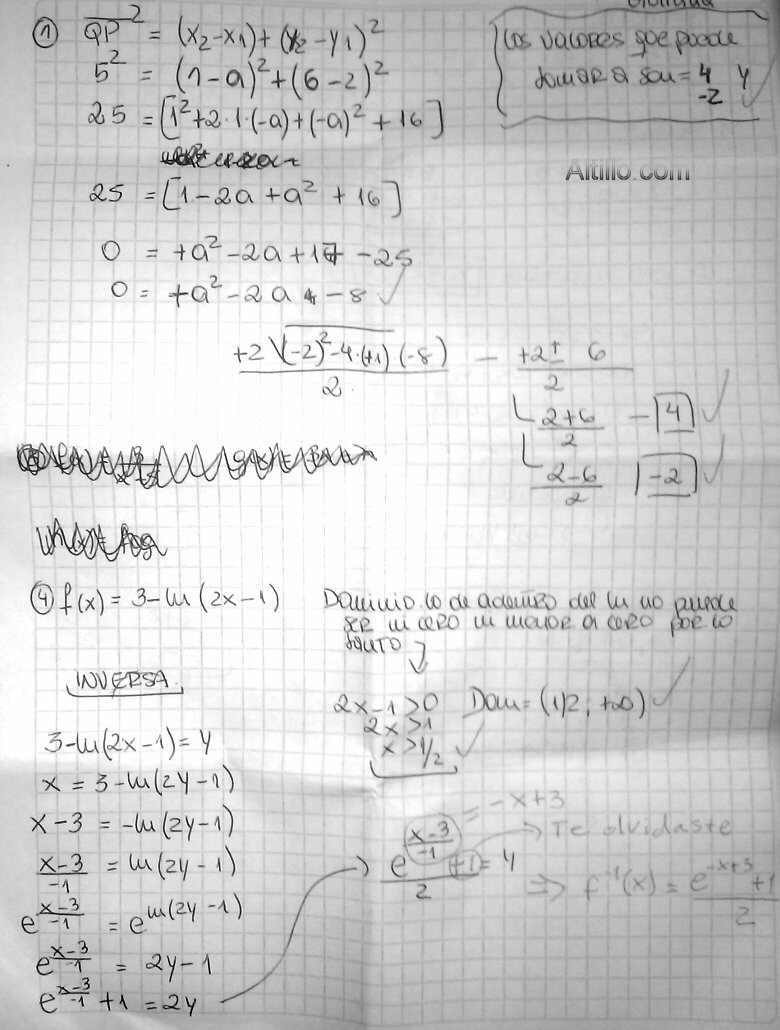 ① QP² = (x₂-x₁)+(y₂-y₁)²
5² = (1-a)²+(6-2)²
25 = [1²+2·1·(-a)+(-a)²+16]
25 = [1-2a+a²+16]
0 = +a²-2a+17-25
0 = +a²-2a-8 ✓
+2 √(-2)²-4·(+1)·(-8) / 2 — +2± 6 / 2
2+6 / 2 — 4 ✓
2-6 / 2 -2 ✓
Los valores que puede
tomar a son = 4 y
-2 ✓
Altillo.com
④ f(x) = 3-ln(2x-1)
Dominio lo de adentro del ln no puede
ser ni cero ni menor a cero por lo
tanto
2x-1>0 Dom = (1/2; +∞) ✓
2x>1
x>1/2 ✓
INVERSA
3-ln(2x-1)=y
x = 3-ln(2y-1)
x-3 = -ln(2y-1)
x-3 / -1 = ln(2y-1)
e^(x-3 / -1) = e^ln(2y-1)
e^(x-3 / -1) = 2y-1
e^(x-3 / -1) +1 = 2y
e^(x-3 / -1) +1 / 2 = y
= -x+3
→ Te olvidaste
⇒ f⁻¹(x) = e^(-x+3) +1 / 2